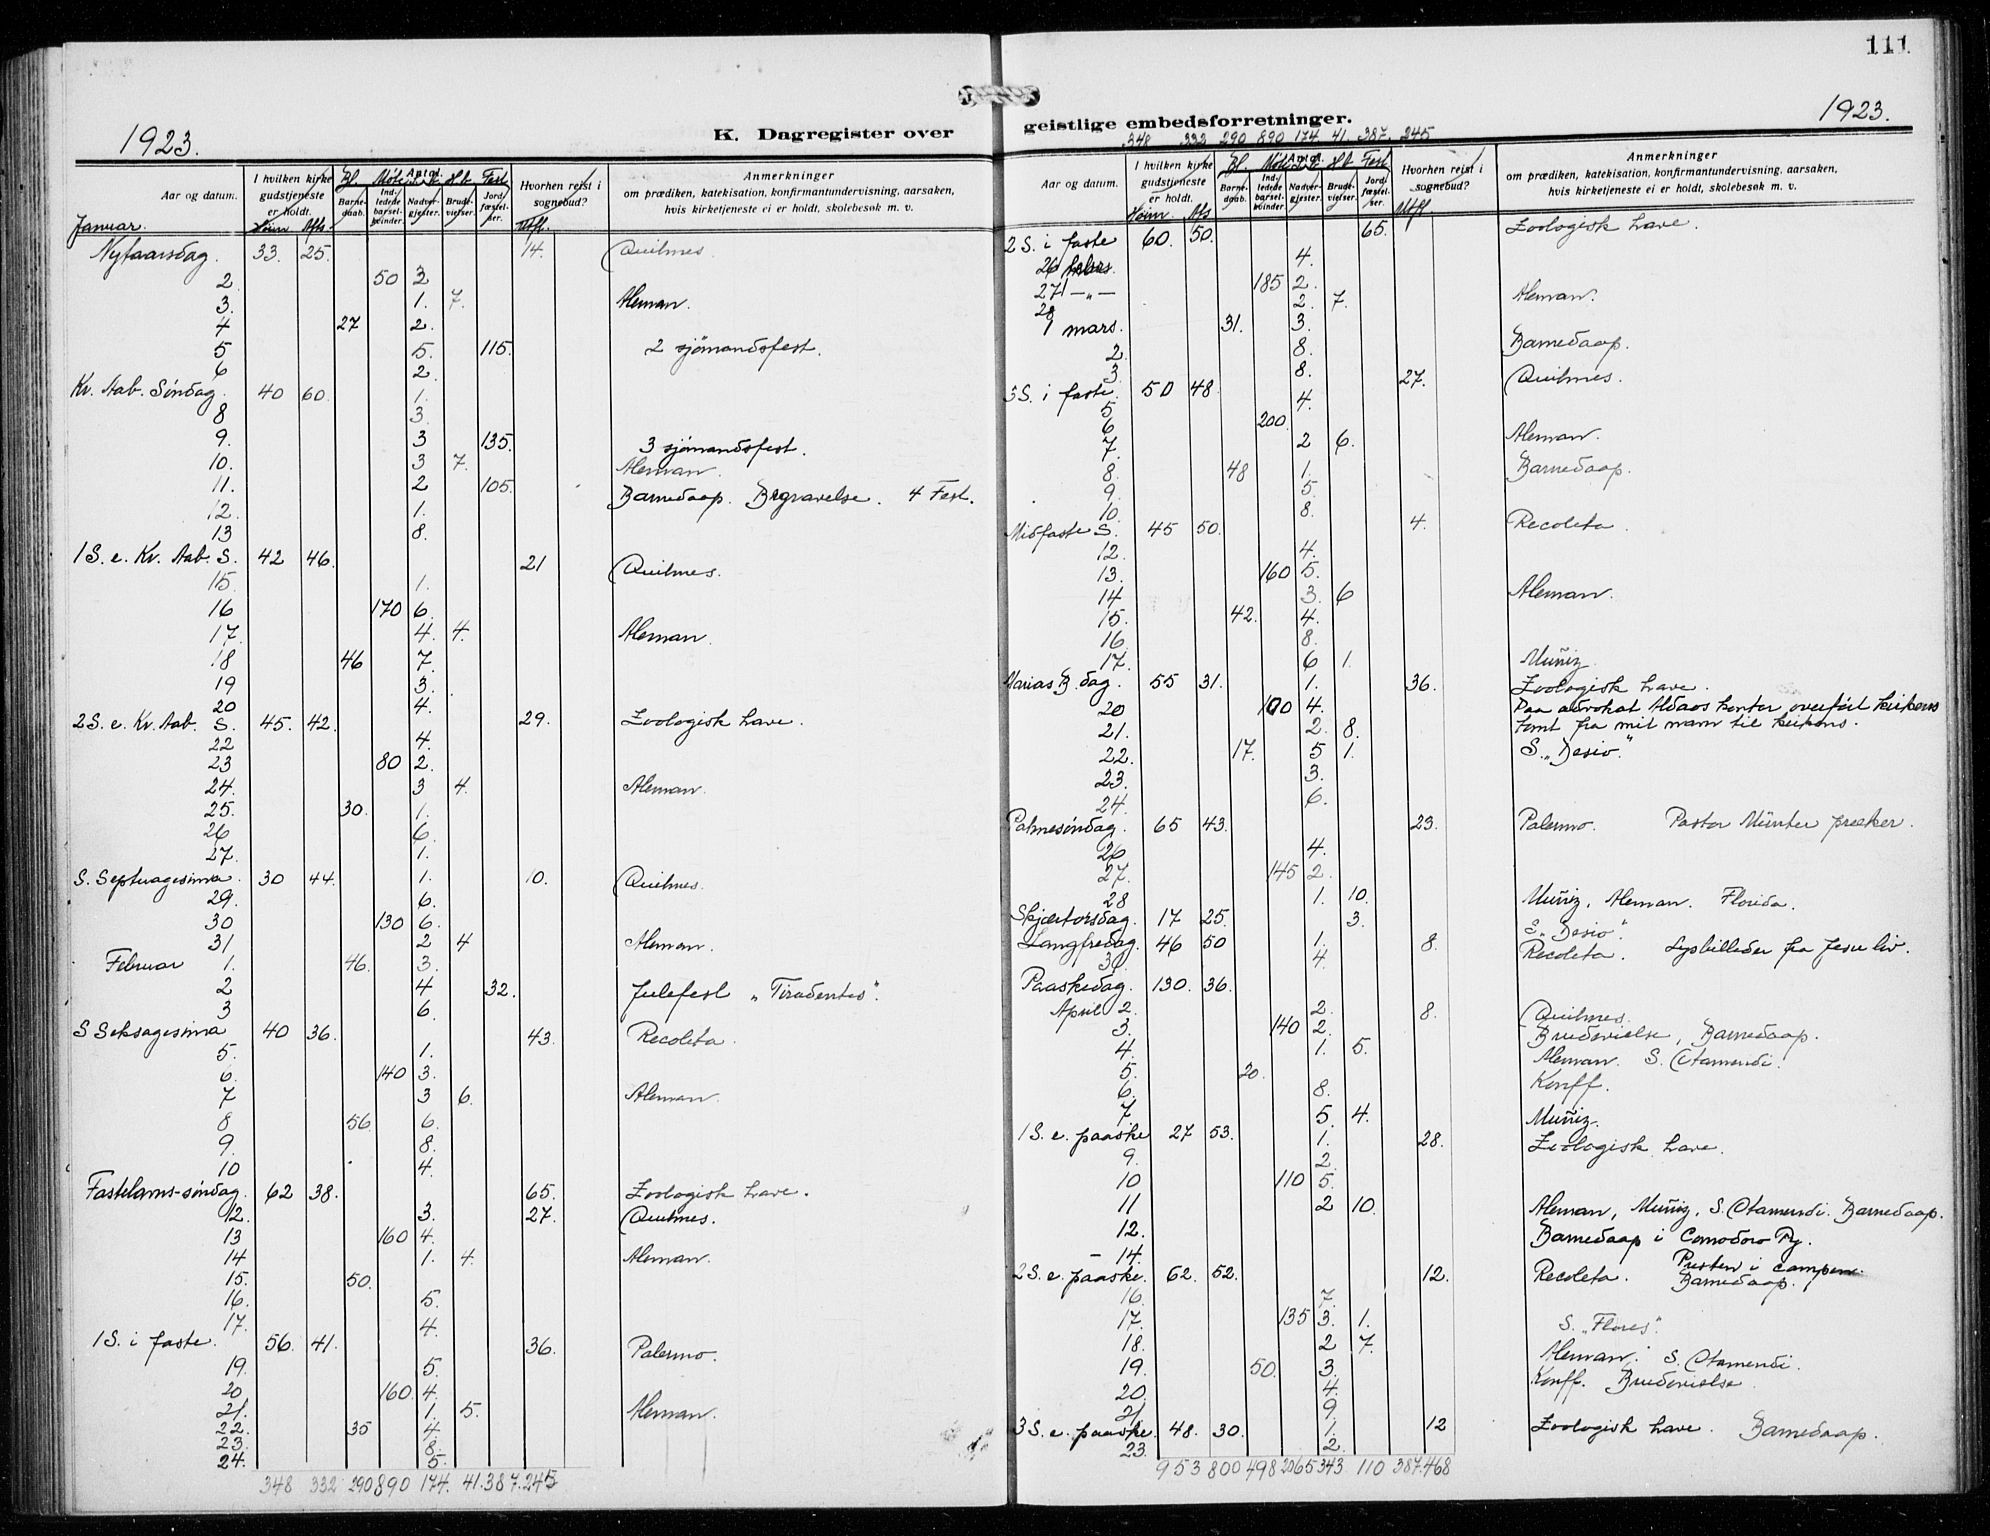 111.
1923.
K. Dagregister over
geistlige embedsforretninger.
1923.
348 332 290 890 174. 41. 387. 245
Aar og datum.
I hvilken kirke gudstjeneste er holdt.
Form Afs
Bl.
Møte
Antal.
H.b.
Fest
Barnedaab.
Indledede barselkvinder.
Nadvergjester.
Brudevielser.
Jordfæstelser.
Hvorhen reist i sognebud?
Utfl.
Anmerkninger
om prædiken, katekisation, konfirmantundervisning, aarsaken,
hvis kirketjeneste ei er holdt, skolebesøk m. v.
Januar.
Nytaarsdag. 33. 25. 14. Quilmes.
2 50 2
3. 1. 7. Aleman.
4 27 2.
5 5. 115. 2 sjömandsfest.
6 2.
Kr. Aab. Söndag. 40 60. 1.
8 3.
9. 3 135. 3 sjömandsfest.
10. 3 7. Aleman.
11. 2 105. Barnedaap. Begravelse. 4 Fest.
12. 1.
13 8.
1 S. e. Kr. Aab. S. 42 46. 21 Quilmes.
15. 1.
16 170 6.
17. 4. 4. Aleman.
18 46 7.
19 3.
20 4.
2 S. e. Kr. Aab. S. 45. 42. 29. Zoologisk have.
22 4.
23 80 2.
24. 3 4. Aleman.
25. 30. 1.
26 6.
27. 1.
S. Septuagesima. 30 44. 1. 10. Quilmes.
29. 6.
30 130 6.
31 2 4 Aleman.
Februar 1. 46. 3.
2 4 32. Julefest "Tiradentes".
3 6.
S Seksagesima 40 36. 43. Recoleta.
5. 1.
6. 140 3.
7 3 6. Aleman.
8 56. 6.
9. 8.
10 4.
Fastelavns-söndag. 62 38. 65. Zoologisk have.
12. 3. 27. Quilmes.
13 160 4.
14 1. 4. Aleman.
15. 50.
16. 5.
17. 4.
1 S. i faste. 56. 41. 36. Palermo.
19. 5.
20 160. 4.
21. 1. 5. Aleman.
22. 35 4.
23. 8.
24. 5.
348 332 290 890 174. 41. 387. 245
Aar og datum.
I hvilken kirke gudstjeneste er holdt.
Form Afs
Bl.
Møte
Antal.
H.b.
Fest
Barnedaab.
Indledede barselkvinder.
Nadvergjester.
Brudevielser.
Jordfæstelser.
Hvorhen reist i sognebud?
Utfl.
Anmerkninger
om prædiken, katekisation, konfirmantundervisning, aarsaken,
hvis kirketjeneste ei er holdt, skolebesøk m. v.
2 S. i faste 60. 50. 65. Zoologisk have.
26 4.
27 -"- 185 2.
28 2. 7. Aleman.
1 mars. 31. 3.
2. 8. Barnedaap.
3 8.
3 S. i faste. 50 48. 27. Quilmes.
5. 4.
6 200
7. 2 6. Aleman.
8. 48 1. Barnedaap.
9. 5.
10. 8.
Midfaste S. 45 50. 4. Recoleta.
12. 4.
13. 160 5.
14 3. 6 Aleman.
15. 42. 4.
16. 8.
17. 6 1. Muñiz.
Marias B. dag. 55 31. 1. 36. Zoologisk have.
20 100 4. Paa advokat Aldaos kontor overfört kirkens
21. 2. 8. tomt fra mit navn til kirkens.
22. 17. 5 1. S. "Desiv."
23. 3.
24. 6.
Palmesöndag. 65 43. 23. Palermo. Pastor Münter præker.
26 4.
27. 145 2.
28 1. 10. Muñiz, Aleman. Florida.
Skjærtorsdag. 17 25. 3. S. "Desiv".
Langfredag. 46 50 1. 8. Recoleta. Lysbilleder fra Jesu liv.
31. 4.
Paaskedag. 130. 36.
April 2. 2. 8. Quilmes.
3. 140 2. Brudevielse, Barnedaap.
4. 1. 5. Aleman. S. Otamendi.
5. 20. Konff.
6. 8.
7 5. 4. Muñiz.
1 S. e. paaske 27 53. 1. 28. Zoologisk have.
9. 2.
10 110 5.
11 2 10. Aleman, Muñiz, S. Otamendi. Barnedaap.
12. Barnedaap i Comodoro Ry.
- 14. Presten i campen.
2 S. e. paaske. 62. 52. 12. Recoleta. Barnedaap.
16. 7.
17. 135 3. 1. S. "Flores".
18. 2 7. Aleman. S. Otamendi.
19. 50. 3. Konff. Brudevielse
20. 4.
21. 9.
3 S. e. paaske. 48. 30. 1. 12 Zoologisk have. Barnedaap.
23. 2.
953 800 498 2065 343. 110 387. 468